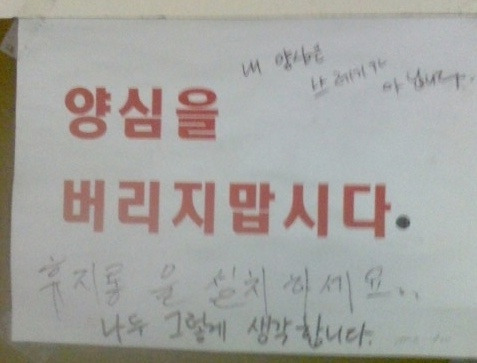 내 양심은
쓰레기가
아닙니다.
양심을
버리지맙시다.
휴지통을 설치하세요..
나두 그렇게 생각합니다.